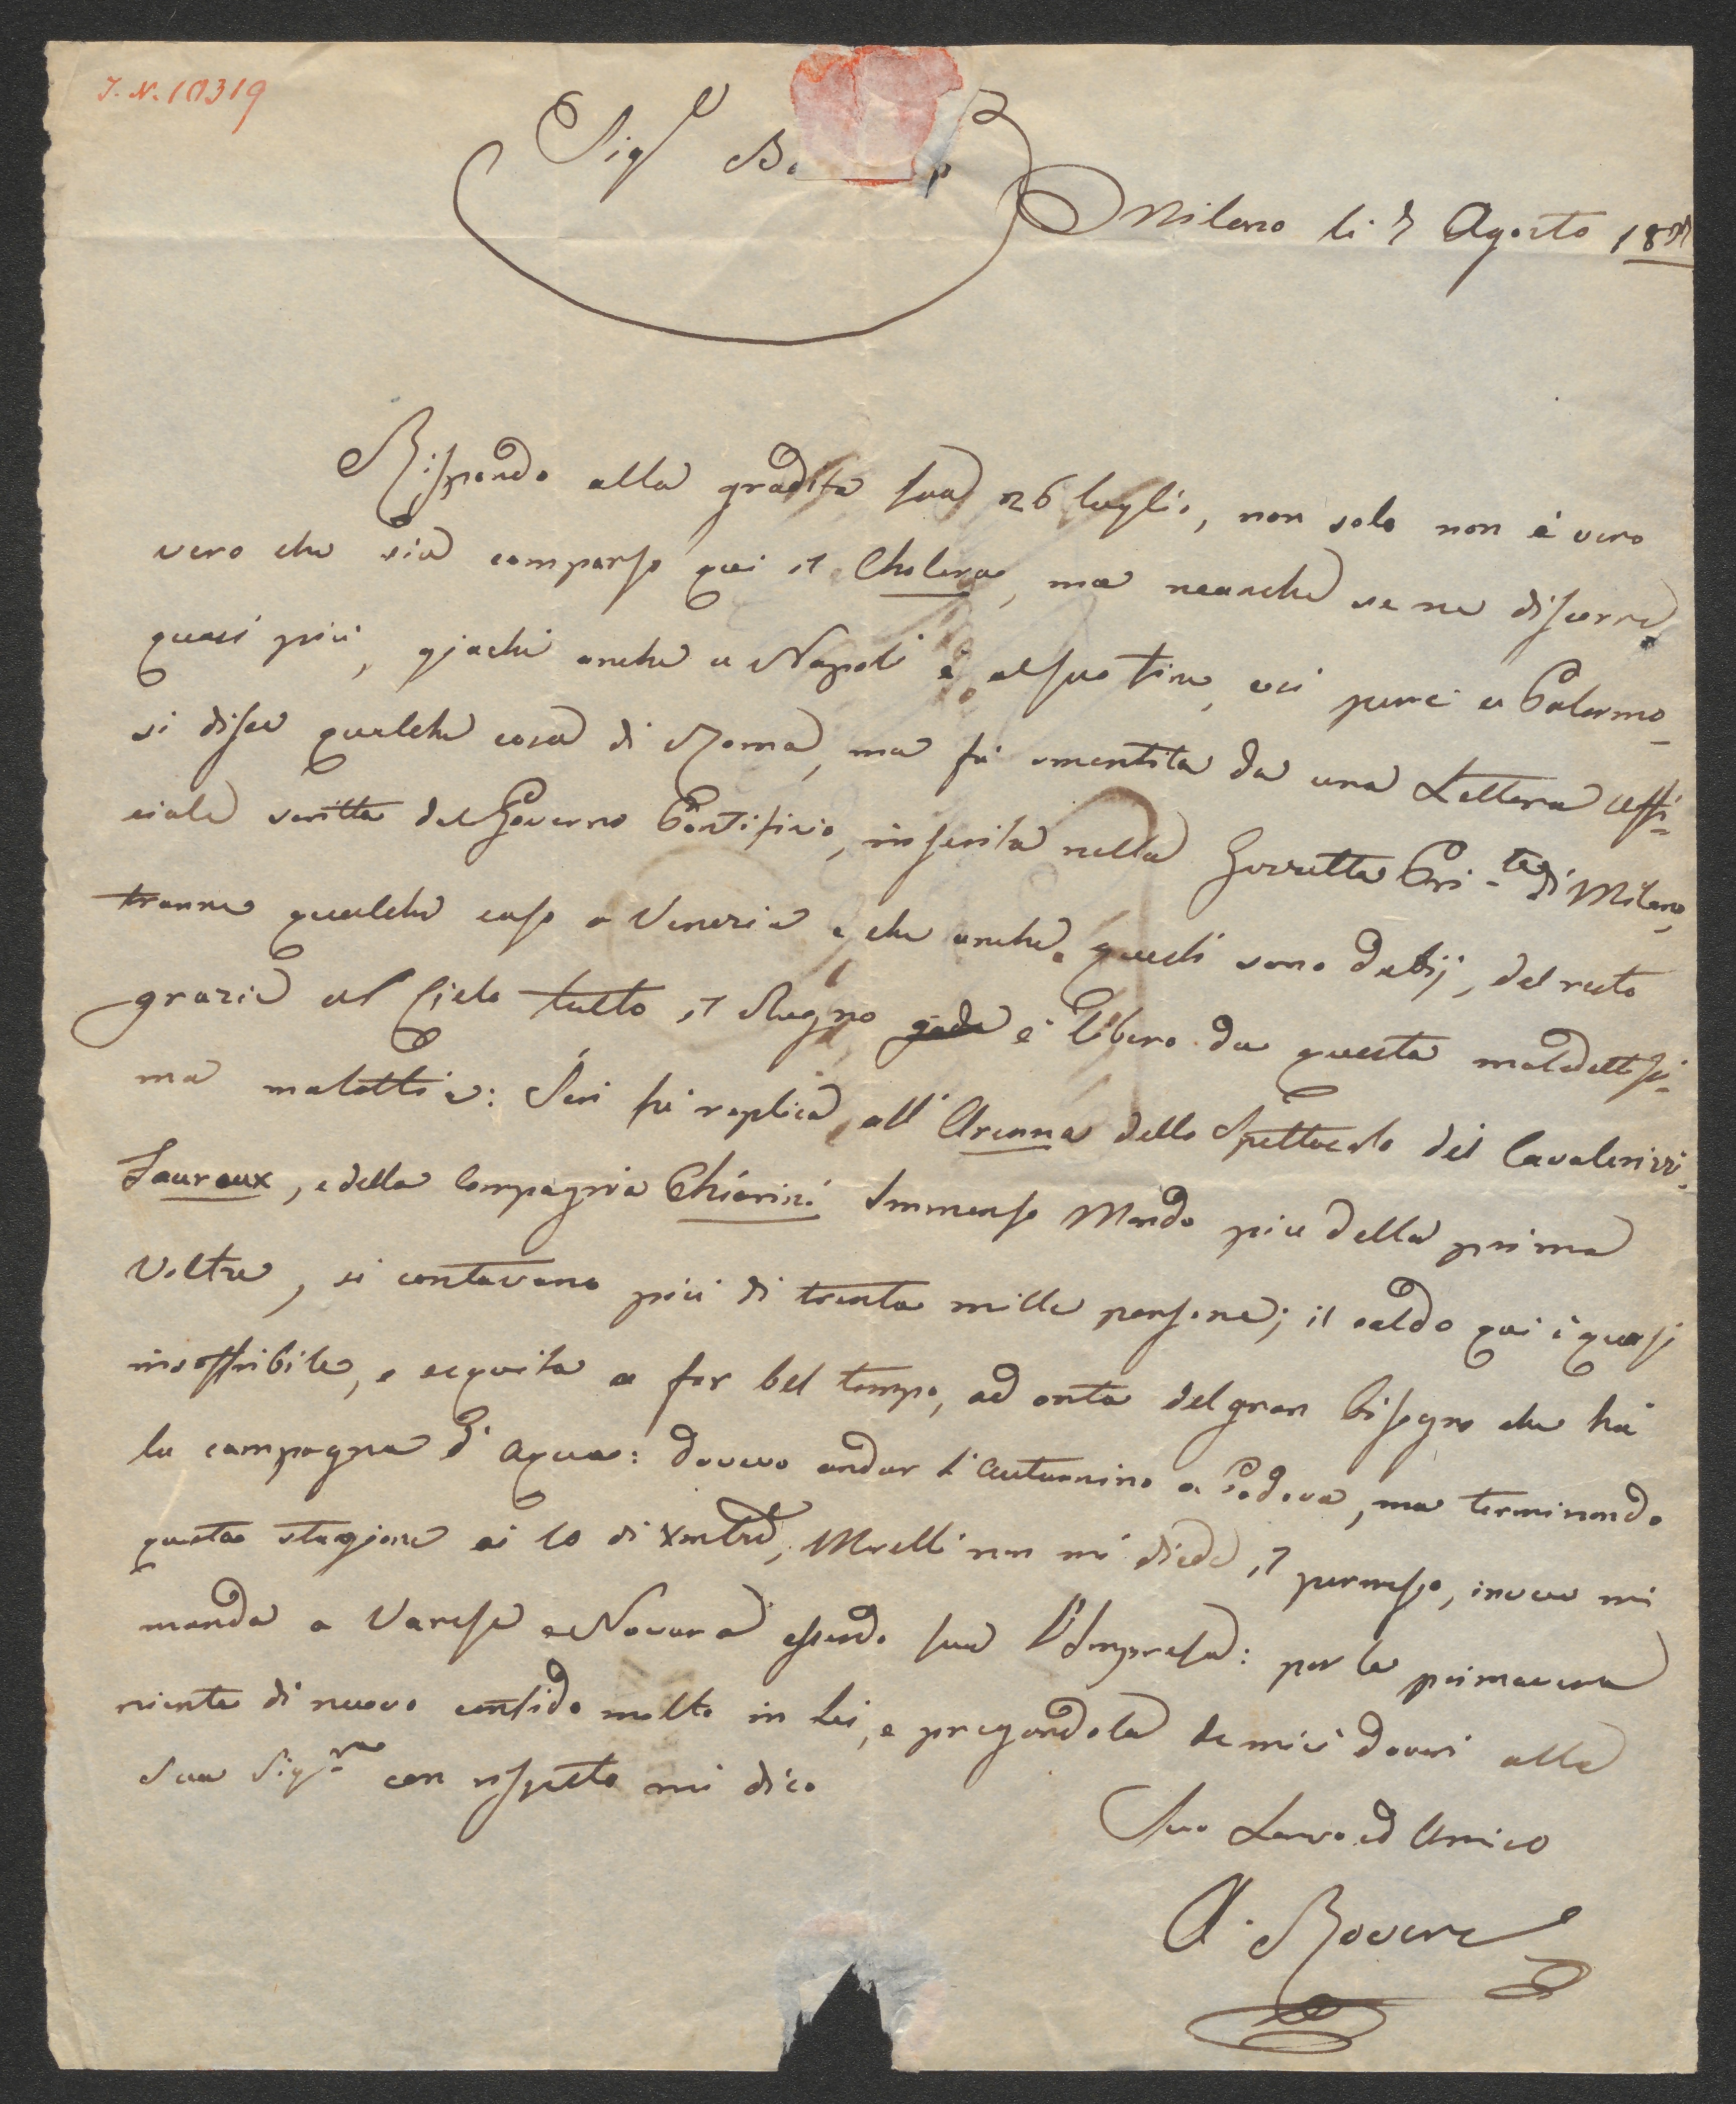 I. N. 10319
Sigr B.
Milano li 7 Agosto 18
Rispondo alla gradita sua 26 luglio, non solo non è vero
vero che sia comparso qui il Cholera, ma neanche se ne discorre
quasi più, giachè anche a Napoli è al suo fine, così pure a Palermo
si disse qualche cosa di Roma, ma fù smentita da una Lettera uffi-
ciale scritta dal Governo Pontificio, inserita nella Gazzetta Pri-ta di Milano,
tranne qualche caso a Venezia e che anche questi sono dubij, del resto
grazie al Cielo tutto il Regno è libero da questa maledettissi-
ma malattia: Ieri fù replica all'Arenna dello Spettacolo dei Cavalerizzi
Fouraux, e della Compagnia Chiarini Immenso Mondo più della prima
Volta, si contavano più di trenta mille persone; il caldo qui è quasi
insoffribile, e seguita a far bel tempo, ad onta del gran bisogno che hà
la campagna d'aqua: dovevo andar l'Autunnino a Padova, ma terminando
questa stagione ai 10 di Xmbre, Merelli non mi diede il permesso, invece mi
manda a Varese e Novara essendo sua l'Impresa: per la primavera
niente di nuovo confido molto in Lei, e pregandola de miei doveri alla
Sua Sigra con rispetto mi dico
Suo Servo ed Amico
A. Rovere